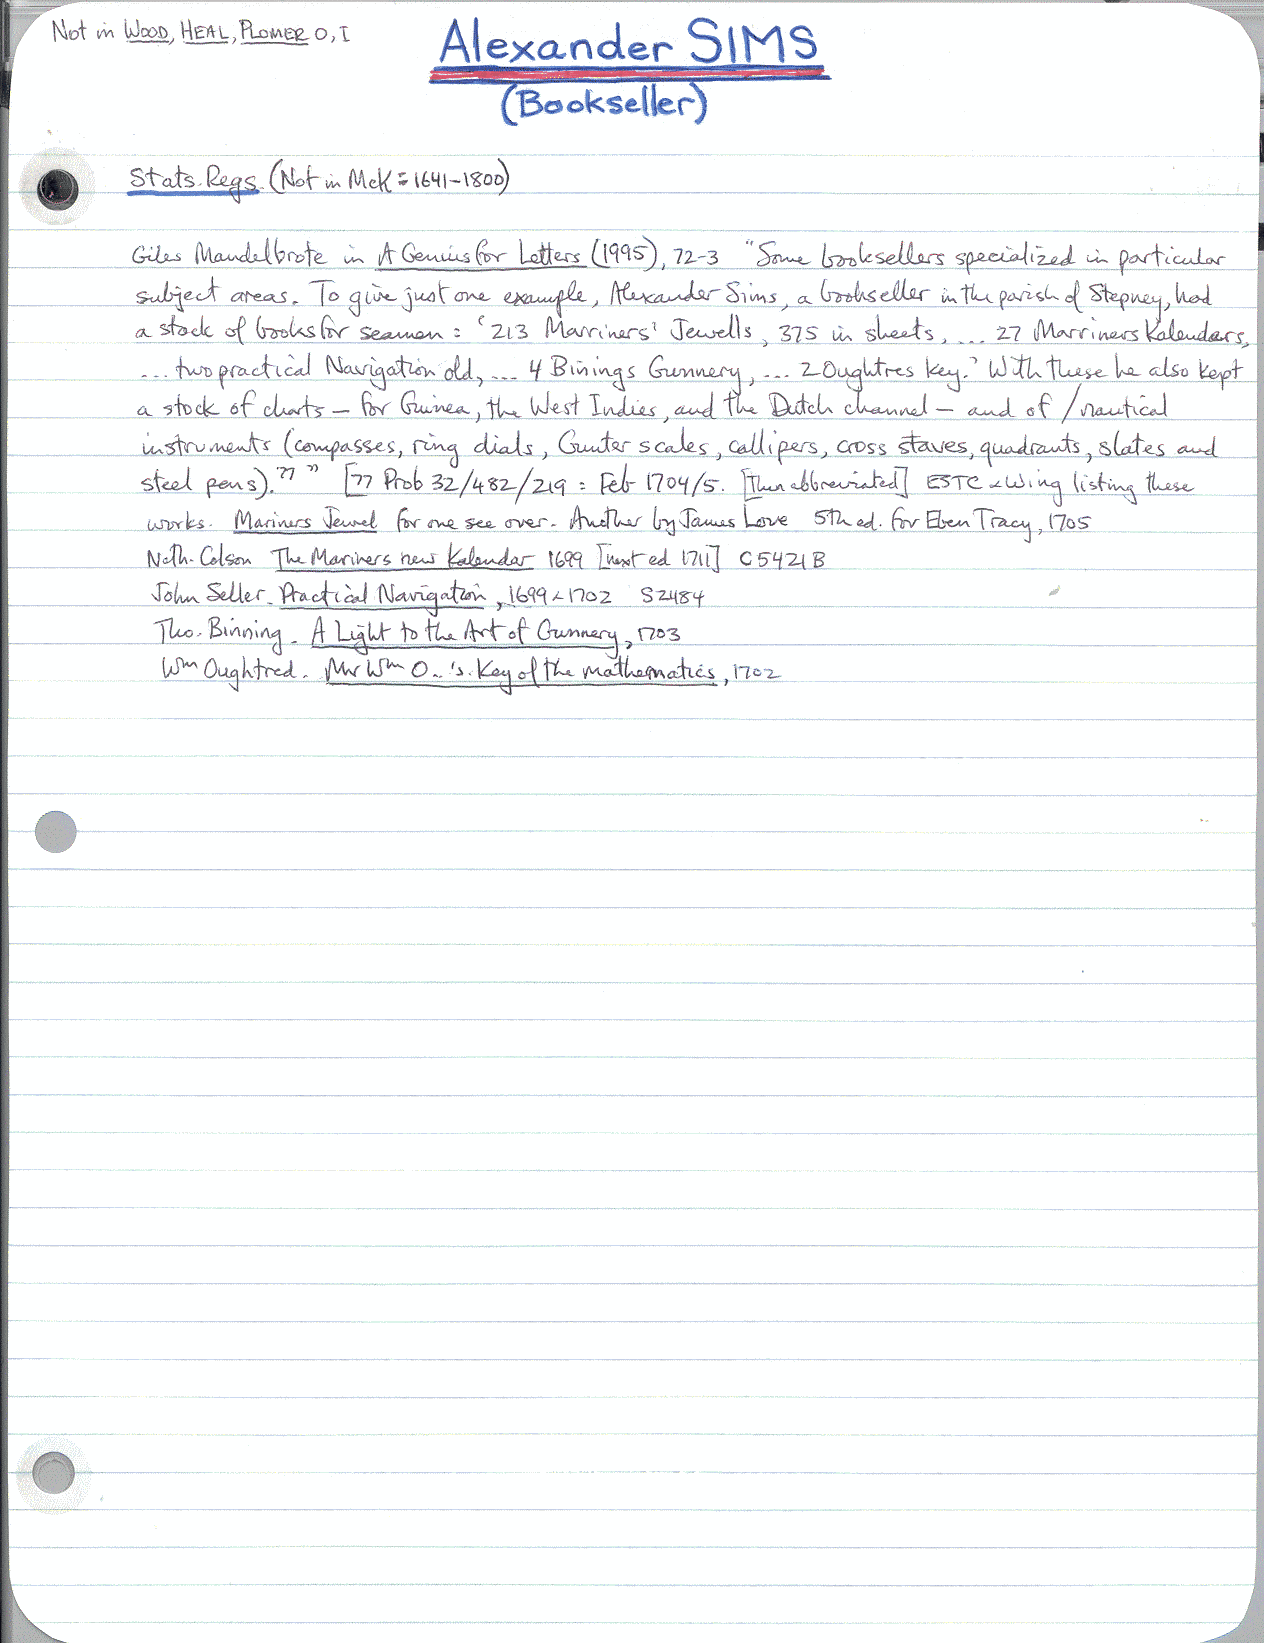 Not in WOOD, HEAL, PLOMER O, I
Alexander SIMS
(Bookseller)
Stats. Regs. (Not in McK = 1641-1800)
Giles Mandelbrote in A Genius for Letters (1995), 72-3 "Some booksellers specialized in particular
subject areas. To give just one example, Alexander Sims, a bookseller in the parish of Stepney, had
a stock of books for seamen: '213 Marriners' Jewells, 375 in sheets, ... 27 Marriners Kalendars,
... two practical Navigation old, ... 4 Binings Gunnery, ... 2 Oughtres key.' With these he also kept
a stock of charts – for Guinea, the West Indies, and the Dutch channel – and of /nautical
instruments (compasses, ring dials, Gunter scales, callipers, cross staves, quadrants, slates and
steel pens).77" [77 Prob 32/482/219 = Feb 1704/5. [Then abbreviated] ESTC & Wing listing these
works. Mariners Jewel for one see over. Another by James Love 5th ed. for Eben Tracy, 1705
Nath. Colson The Mariners new Kalendar 1699 [next ed 1711] C5421B
John Seller. Practical Navigation, 1699 & 1702 S2484
Tho. Binning. A Light to the Art of Gunnery, 1703
Wm Oughtred. Mr Wm O..'s. Key of the mathematics, 1702